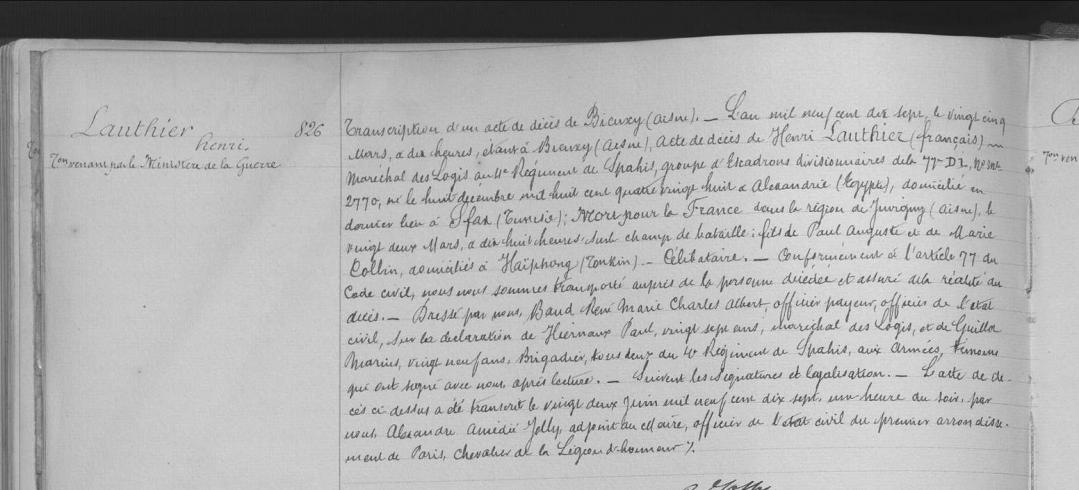 Lauthier
henri.
826
venant par le Ministère de la Guerre
Transcription d'un acte de décès de Bieuxy (aisne). — L'an mil neuf cent dix sept, le vingt cinq
Mars, a dix heures, étant à Bieuxy (Aisne), Acte de décès de Henri Lauthier (français),
Maréchal des Logis au 4e Régiment de Spahis, groupe d'Escadrons divisionnaires de la 77e D.I., No mle
2770, né le huit décembre mil huit cent quatre vingt huit à Alexandrie (Egypte), domicilié en
dernier lieu à Sfax (Tunisie); Mort pour la France dans la région de Juvigny (aisne), le
vingt deux Mars, a dix huit heures, sur le champ de bataille; fils de Paul Auguste et de Marie
Collin, domiciliés à Haïphong (Tonkin). — Célibataire. — Conformément à l'article 77 du
Code civil, nous nous sommes transporté auprès de la personne décédée et assuré de la réalité du
décès. — Dressé par nous, Baud René Marie Charles Albert, officier payeur, officier de l'état
civil, sur la déclaration de Hiernaux Paul, vingt sept ans, maréchal des Logis, et de Guillot
Marius, vingt neuf ans, Brigadier, tous deux du 4e Régiment de Spahis, aux Armées, témoins
qui ont signé avec nous, après lecture. — Suivent les signatures et légalisation. — L'acte de dé-
cès ci dessus a été transcrit le vingt deux Juin mil neuf cent dix sept, une heure du soir, par
nous, Alexandre Amédée Jolly, adjoint au Maire, officier de l'état civil du premier arrondisse-
ment de Paris, Chevalier de la Légion d'honneur ./.